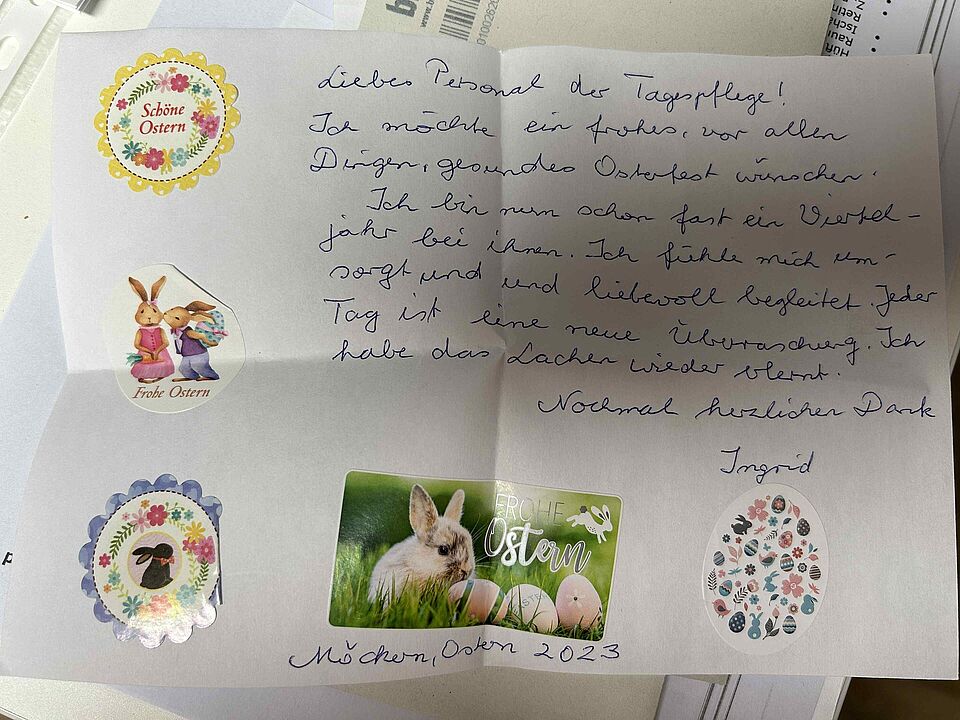 Liebes Personal der Tagespflege!
Ich möchte ein frohes, vor allen
Dingen, gesundes Osterfest wünschen.
Ich bin nun schon fast ein Viertel-
jahr bei ihnen. Ich fühle mich um-
sorgt und und liebevoll begleitet. Jeder
Tag ist eine neue Überraschung. Ich
habe das Lachen wieder erlernt.
Nochmal herzlichen Dank
Ingrid
Schöne
Ostern
Frohe Ostern
FROHE
Ostern
Möckern, Ostern 2023